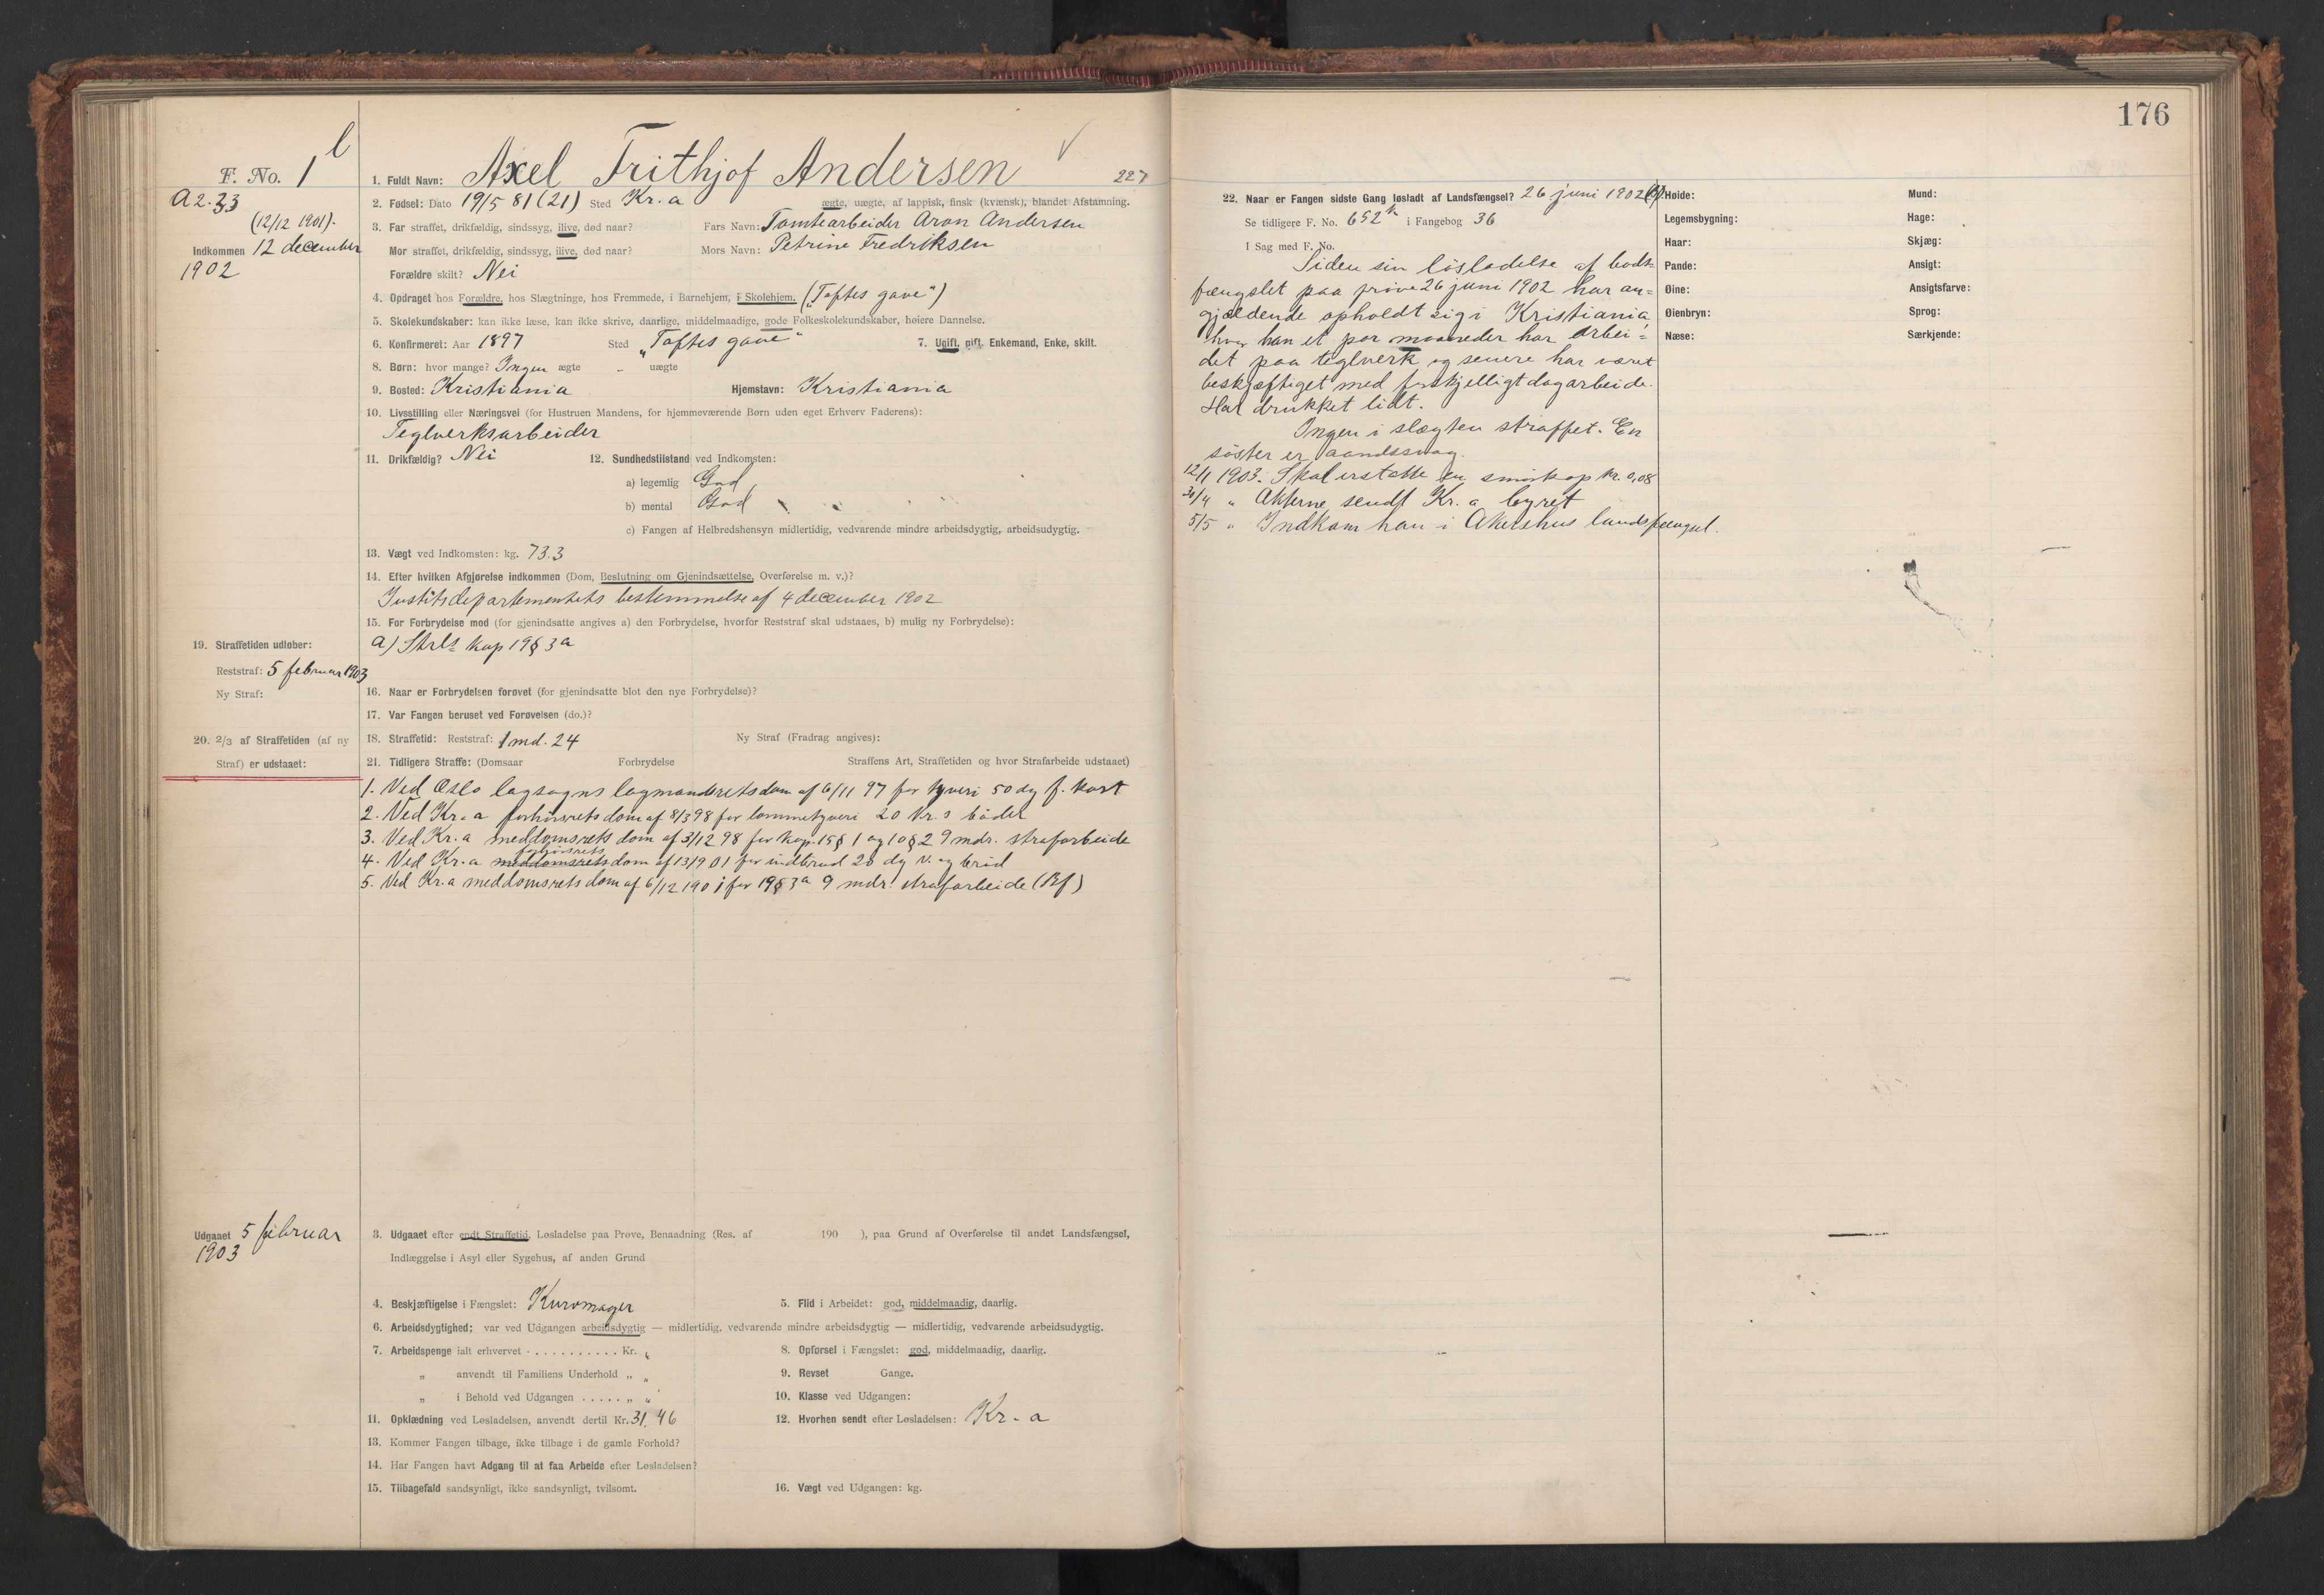 176
F. No. 1 l
1. Fuldt Navn: Axel Frithjof Andersen
227
A 2.33
(12/12 1901).
Indkommen 12 december
1902
2. Fødsel: Dato 19/5 81 (21) Sted Kr.a ægte, uægte, af lappisk, finsk (kvænsk), blandet Afstamning.
3. Far straffet, drikfældig, sindssyg, ilive, død naar? Fars Navn: Tomtearbeider Aron Andersen
Mor straffet, drikfældig, sindssyg, ilive, død naar? Mors Navn: Petrine Fredriksen
Forældre skilt? Nei
4. Opdraget hos Forældre, hos Slægtninge, hos Fremmede, i Barnehjem, i Skolehjem. („Toftes gave“)
5. Skolekundskaber: kan ikke læse, kan ikke skrive, daarlige, middelmaadige, gode Folkeskolekundskaber, høiere Dannelse.
6. Konfirmeret: Aar 1897 Sted „Toftes gave“ 7. Ugift, gift, Enkemand, Enke, skilt.
8. Børn: hvor mange? Ingen ægte „ uægte
9. Bosted: Kristiania Hjemstavn: Kristiania
10. Livsstilling eller Næringsvei (for Hustruen Mandens, for hjemmeværende Børn uden eget Erhverv Faderens):
Teglverksarbeider
11. Drikfældig? Nei 12. Sundhedstilstand ved Indkomsten:
a) legemlig God
b) mental God
c) Fangen af Helbredshensyn midlertidig, vedvarende mindre arbeidsdygtig, arbeidsudygtig.
13. Vægt ved Indkomsten: kg. 73.3
14. Efter hvilken Afgjørelse indkommen (Dom, Beslutning om Gjenindsættelse, Overførelse m. v.)?
Justitsdepartementets bestemmelse af 4 december 1902
15. For Forbrydelse mod (for gjenindsatte angives a) den Forbrydelse, hvorfor Reststraf skal udstaaes, b) mulig ny Forbrydelse):
a) Strls kap 19 § 3 a
19. Straffetiden udløber:
Reststraf: 5 februar 1903
Ny Straf:
16. Naar er Forbrydelsen forøvet (for gjenindsatte blot den nye Forbrydelse)?
17. Var Fangen beruset ved Forøvelsen (do.)?
20. 2/3 af Straffetiden (af ny
Straf) er udstaaet:
18. Straffetid: Reststraf: 1 md. 24 Ny Straf (Fradrag angives):
21. Tidligere Straffe: (Domsaar Forbrydelse Straffens Art, Straffetiden og hvor Strafarbeide udstaaet)
1. Ved Oslo lagsogns lagmandsretsdom af 6/11 97 for tyveri 50 dg f. kost
2. Ved Kr.a forhørsretsdom af 8/3 98 for lommetyveri 20 kr.s bøder
3. Ved Kr.a meddomsrets dom af 3/12 98 for kap. 15 § 1 og 10 § 2 9 mdr. strafarbeide
4. Ved Kr.a meddomsrets forhørsrets dom af 13/9 01 for indbrud 20 dg v. og brød
5. Ved Kr.a meddomsrets dom af 6/12 1901 for 19 § 3 a 9 mdr. strafarbeide (Bf)
Udgaaet 5 februar
1903
3. Udgaaet efter endt Straffetid, Løsladelse paa Prøve, Benaadning (Res. af 190 ), paa Grund af Overførelse til andet Landsfængsel,
Indlæggelse i Asyl eller Sygehus, af anden Grund
4. Beskjæftigelse i Fængslet: Kurvmager 5. Flid i Arbeidet: god, middelmaadig, daarlig.
6. Arbeidsdygtighed; var ved Udgangen arbeidsdygtig — midlertidig, vedvarende mindre arbeidsdygtig — midlertidig, vedvarende arbeidsudygtig.
7. Arbeidspenge ialt erhvervet . . . . . . . . . . . Kr. „ 8. Opførsel i Fængslet: god, middelmaadig, daarlig.
„ anvendt til Familiens Underhold „ „ 9. Revset Gange.
„ i Behold ved Udgangen . . . . . „ „ 10. Klasse ved Udgangen:
11. Opklædning ved Løsladelsen, anvendt dertil Kr. 31.46 12. Hvorhen sendt efter Løsladelsen: Kr.a
13. Kommer Fangen tilbage, ikke tilbage i de gamle Forhold?
14. Har Fangen havt Adgang til at faa Arbeide efter Løsladelsen?
15. Tilbagefald sandsynligt, ikke sandsynligt, tvilsomt. 16. Vægt ved Udgangen: kg.
22. Naar er Fangen sidste Gang løsladt af Landsfængsel? 26 juni 1902
Se tidligere F. No. 652 k i Fangebog 36
I Sag med F. No.
Siden sin løsladelse af bods-
fængslet paa prøve 26 juni 1902 har an=
gjældende opholdt sig i Kristiania,
hvor han et par maaneder har arbei=
det paa teglverk og senere har været
beskjæftiget med forskjelligt dagarbeide.
Har drukket lidt.
Ingen i slægten straffet. En
søster er aandssvag.
12/1 1903. Skal erstatte en smørkop kr. 0,08
30/4 „ Akterne sendt Kr.a byret
5/5 „ Indkom han i Akershus landsfængsel.
Høide: Mund:
Legemsbygning: Hage:
Haar: Skjæg:
Pande: Ansigt:
Øine: Ansigtsfarve:
Øienbryn: Sprog:
Næse: Særkjende: